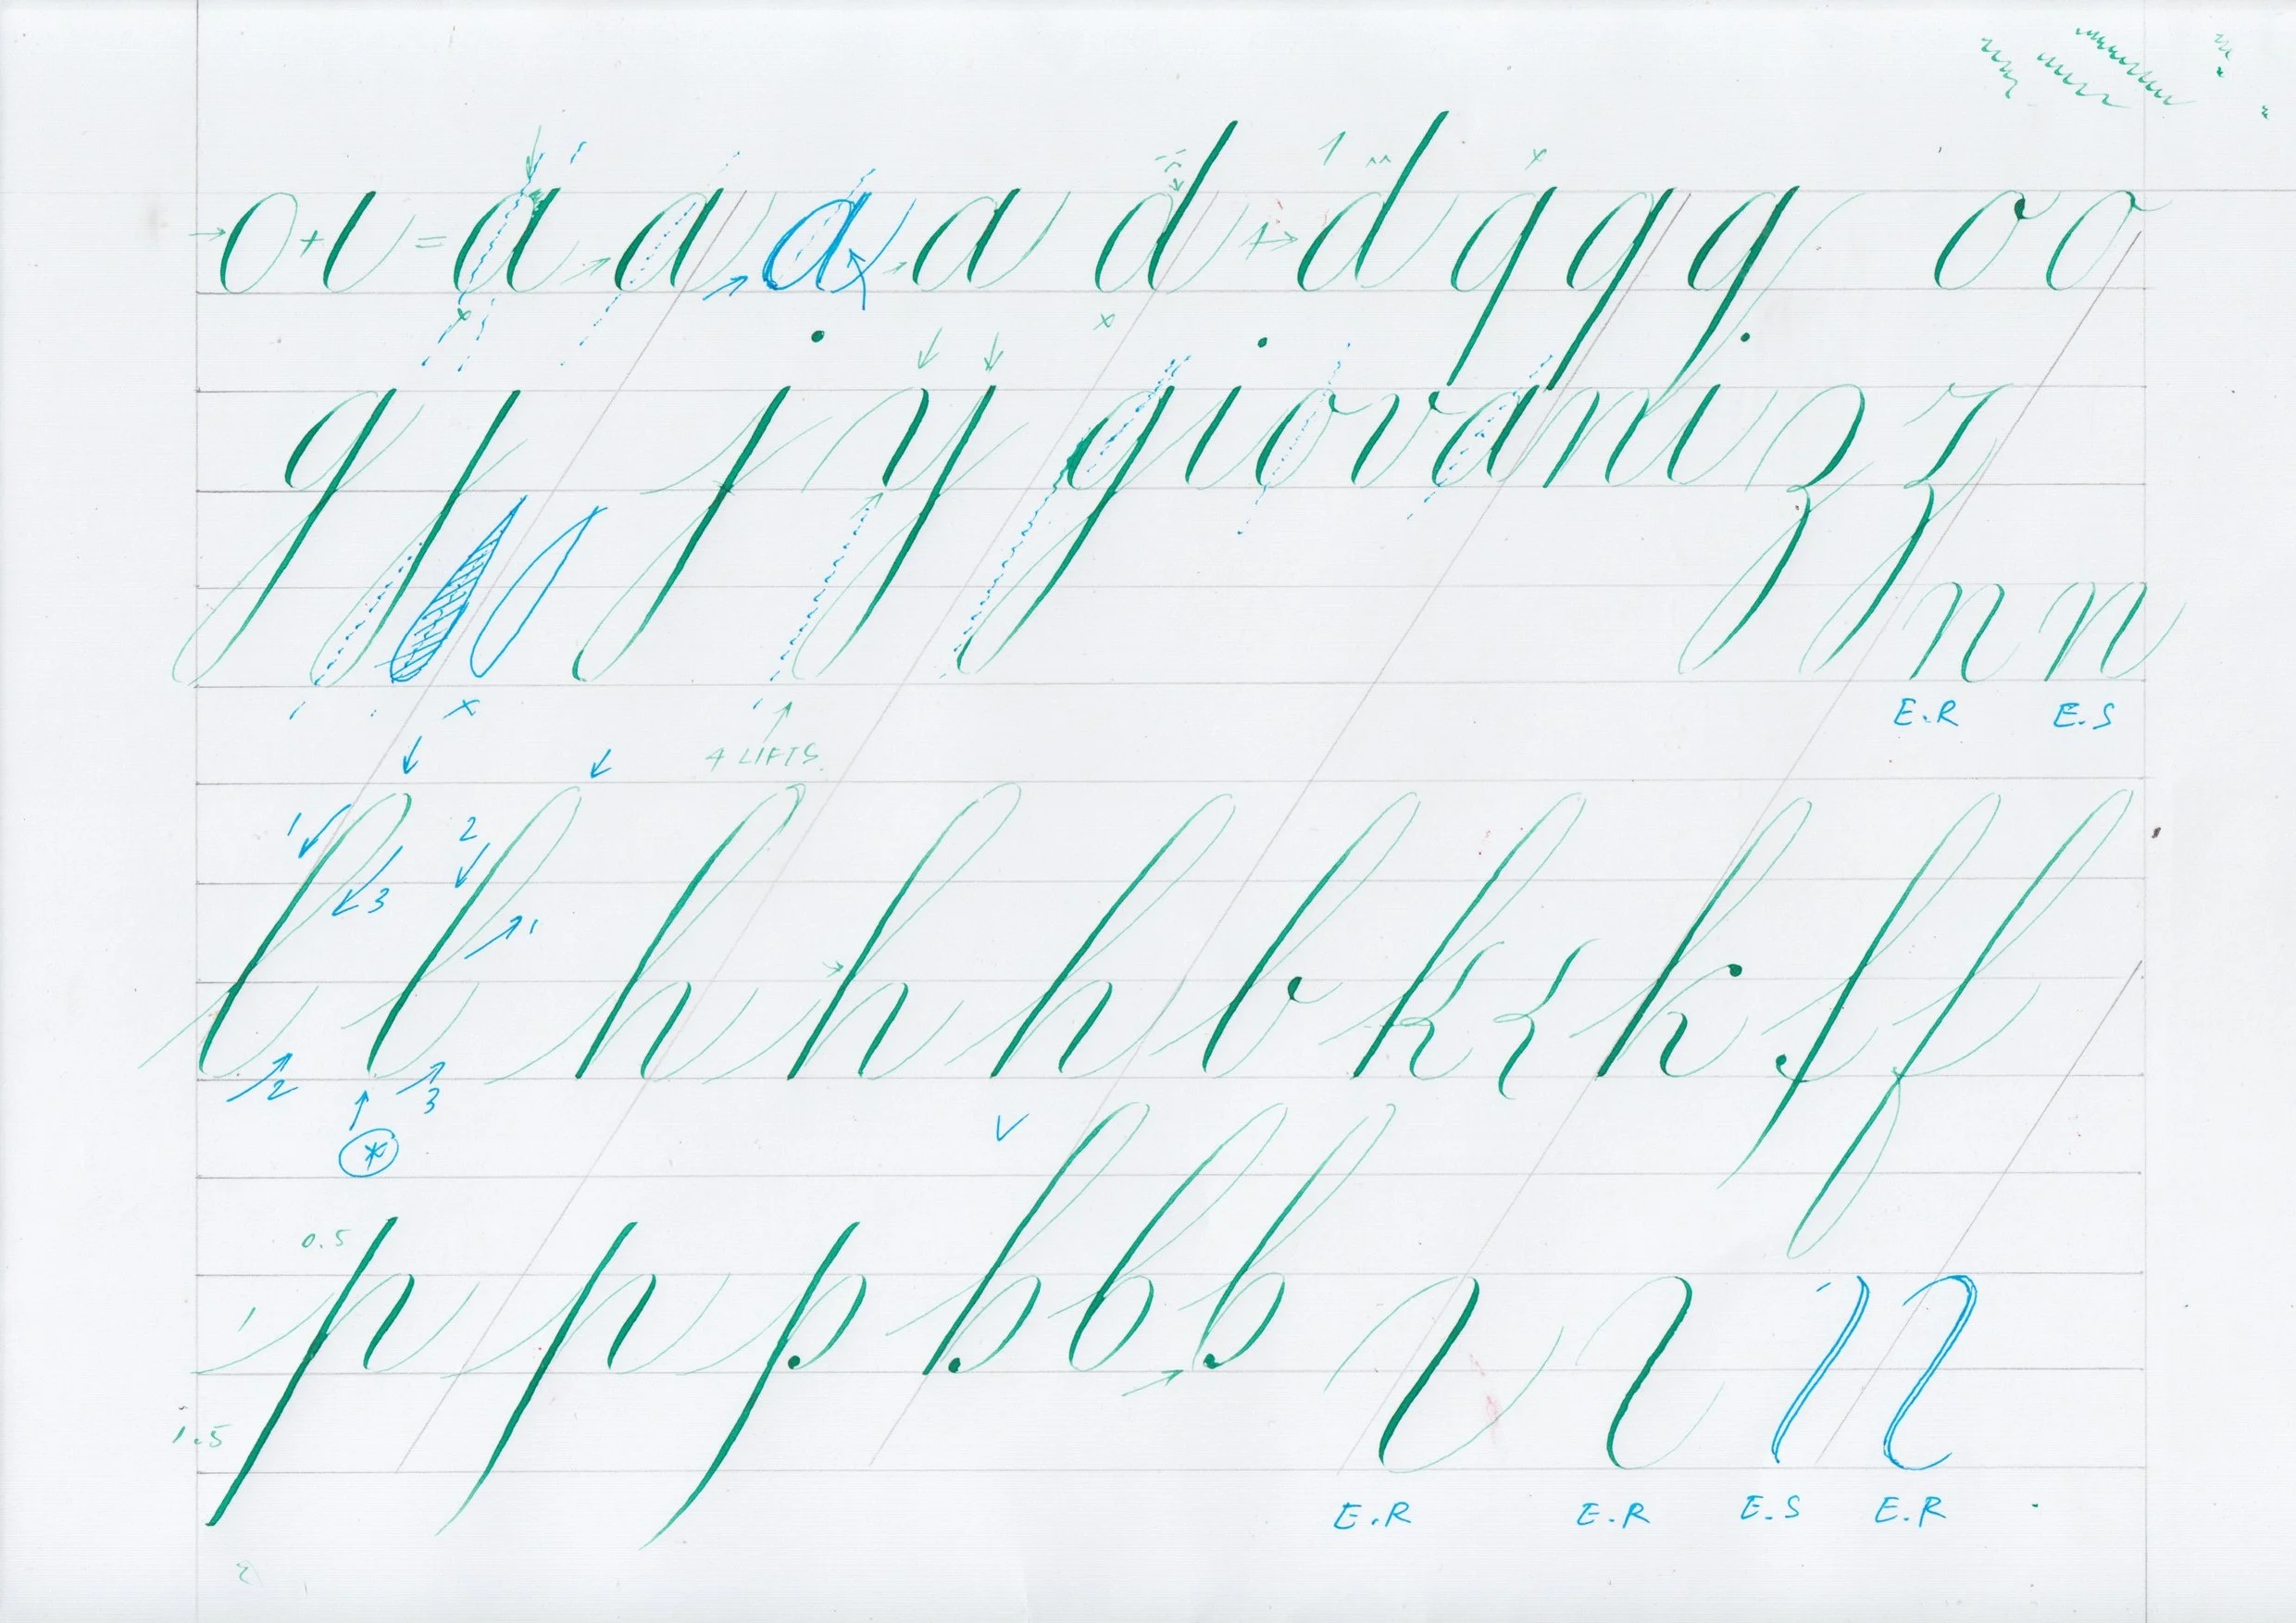 o + ı = a a a a d d q q q o o
q j y giovani z z
n n
E.R E.S
4 LIFTS.
1 2 3 1
l l h h h b k k f f
2 3
*
0.5
1 p p p b b b
1.5
E.R E.R E.S E.R